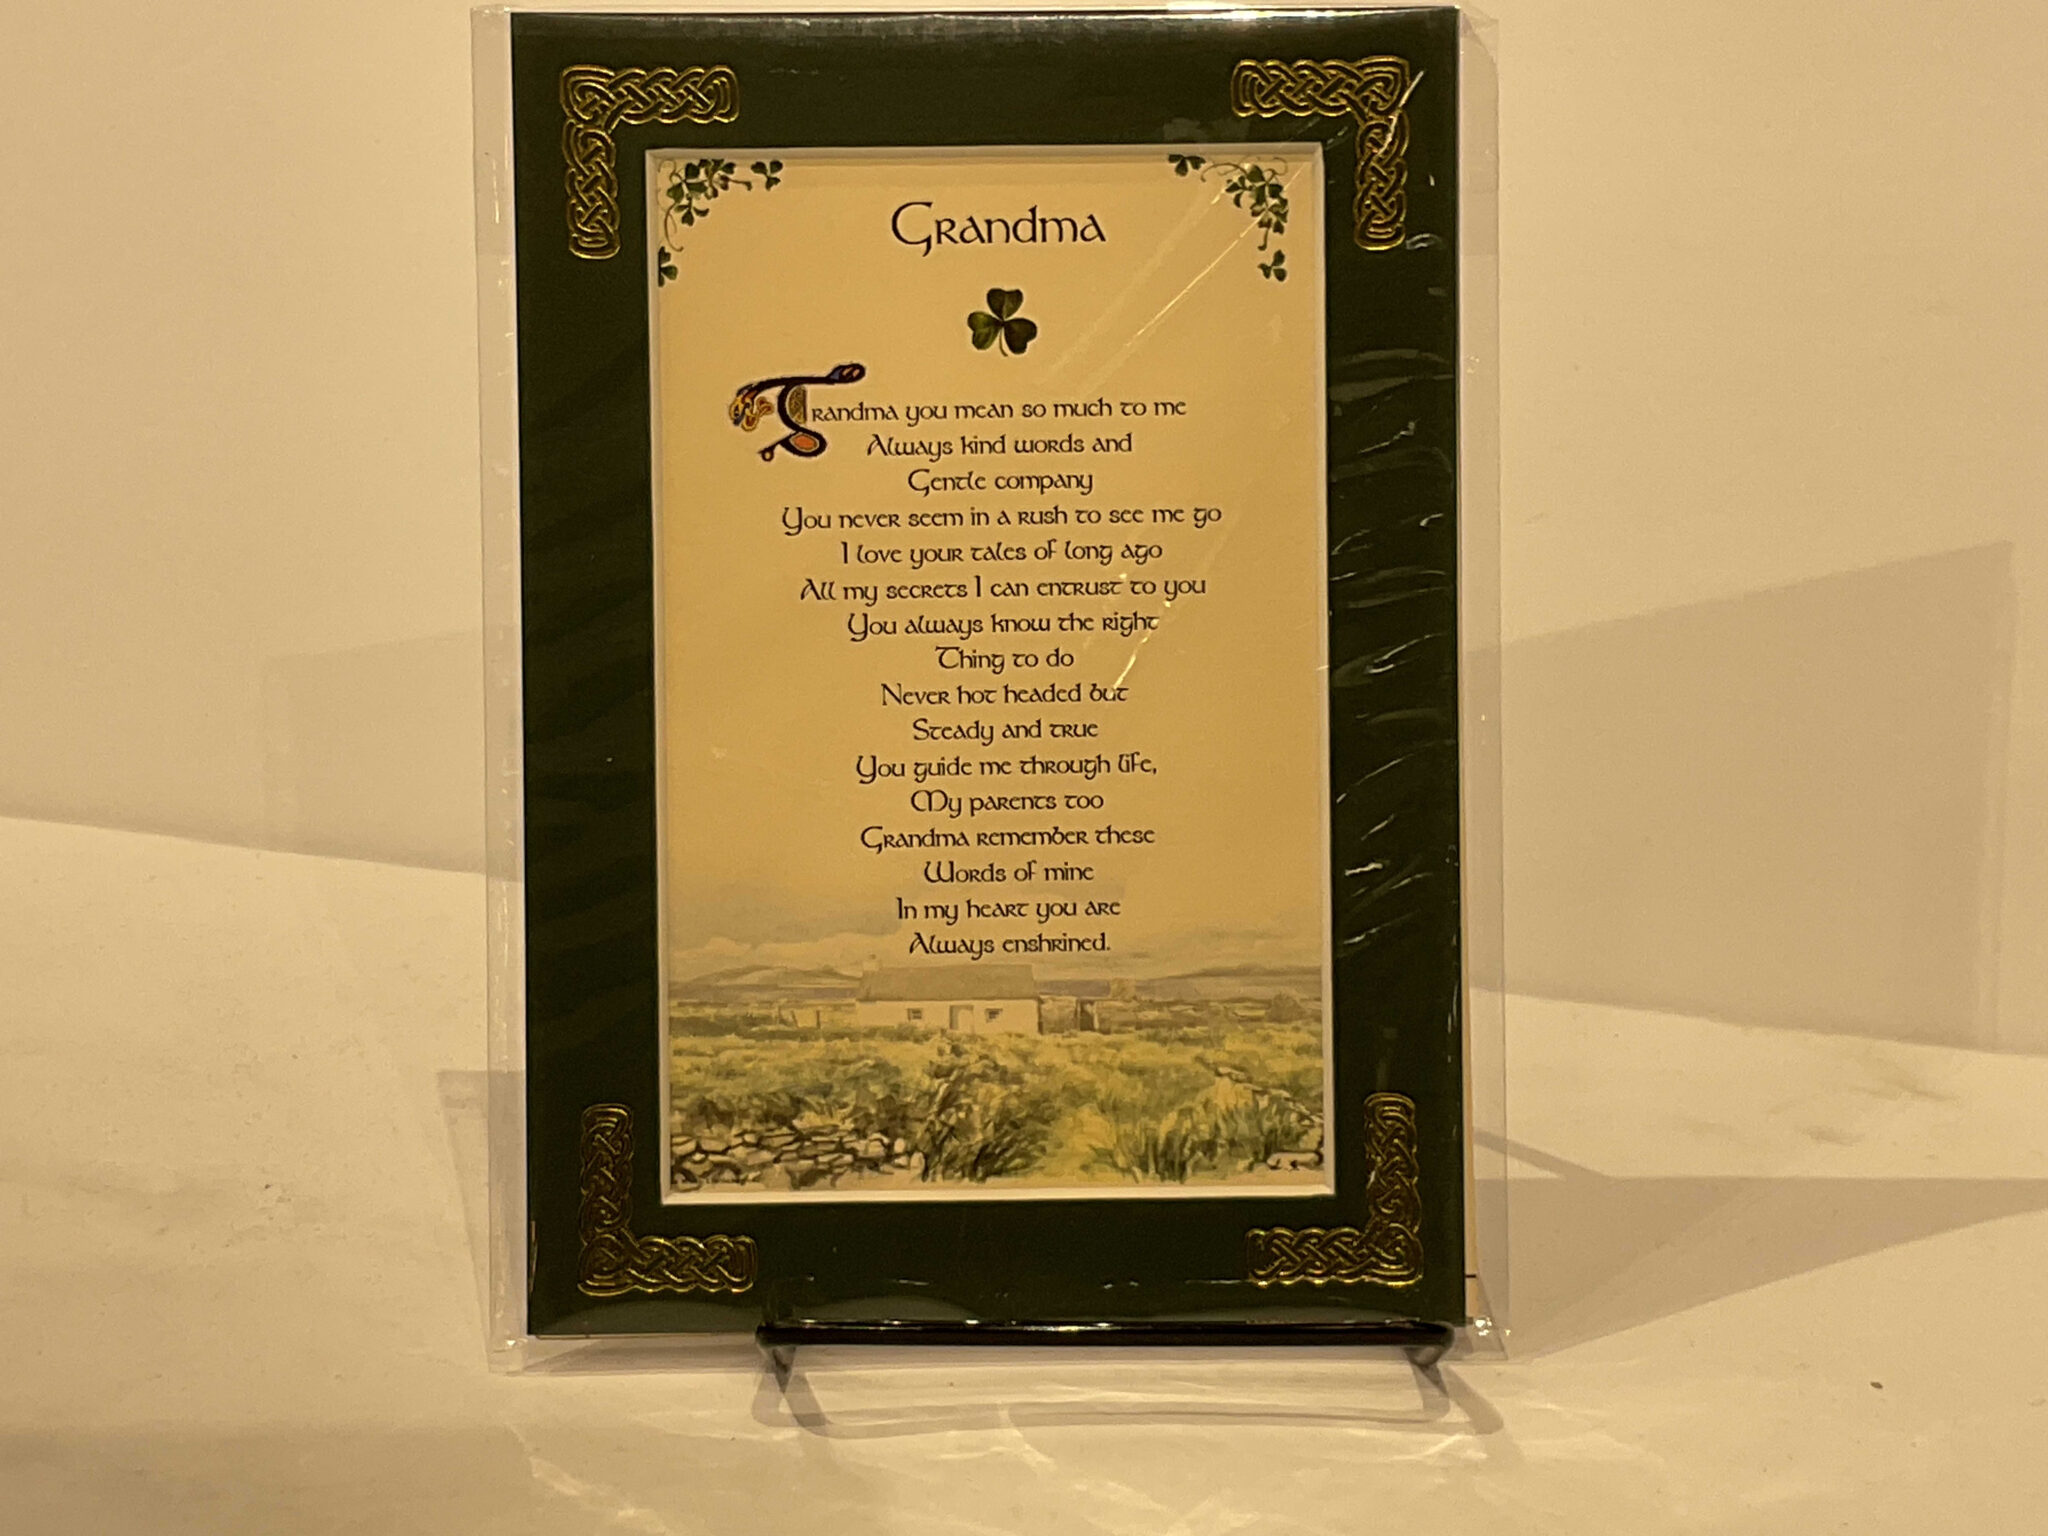 Grandma
Grandma you mean so much to me
Always kind words and
Gentle company
You never seem in a rush to see me go
I love your tales of long ago
All my secrets I can entrust to you
You always know the right
Thing to do
Never hot headed but
Steady and true
You guide me through life,
My parents too
Grandma remember these
Words of mine
In my heart you are
Always enshrined.